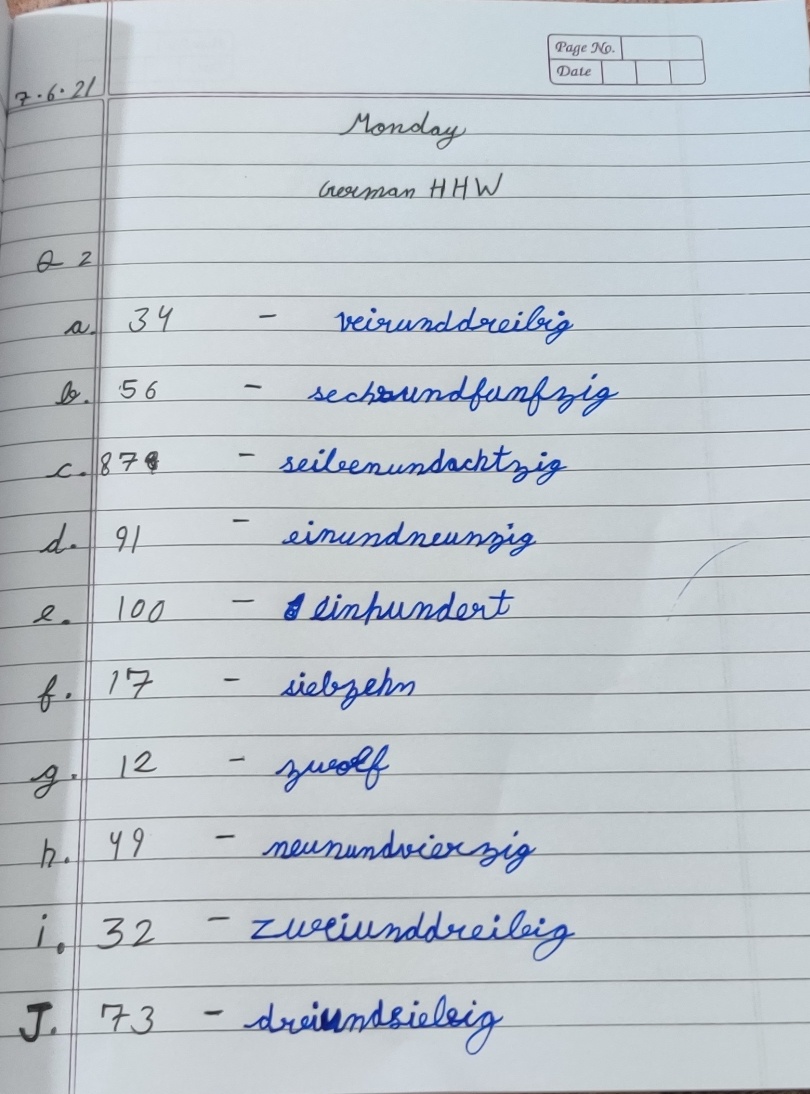 Page No.
Date
7.6.21
Monday
German HHW
Q 2
a. 34 - veirunddreibig
b. 56 - sechsundfunfzig
c. 87 - seibenundachtzig
d. 91 - einundneunzig
e. 100 - einhundert
f. 17 - siebzehn
g. 12 - zwolf
h. 49 - neunundvierzig
i. 32 - zweiunddreibig
J. 73 - dreiundsiebzig